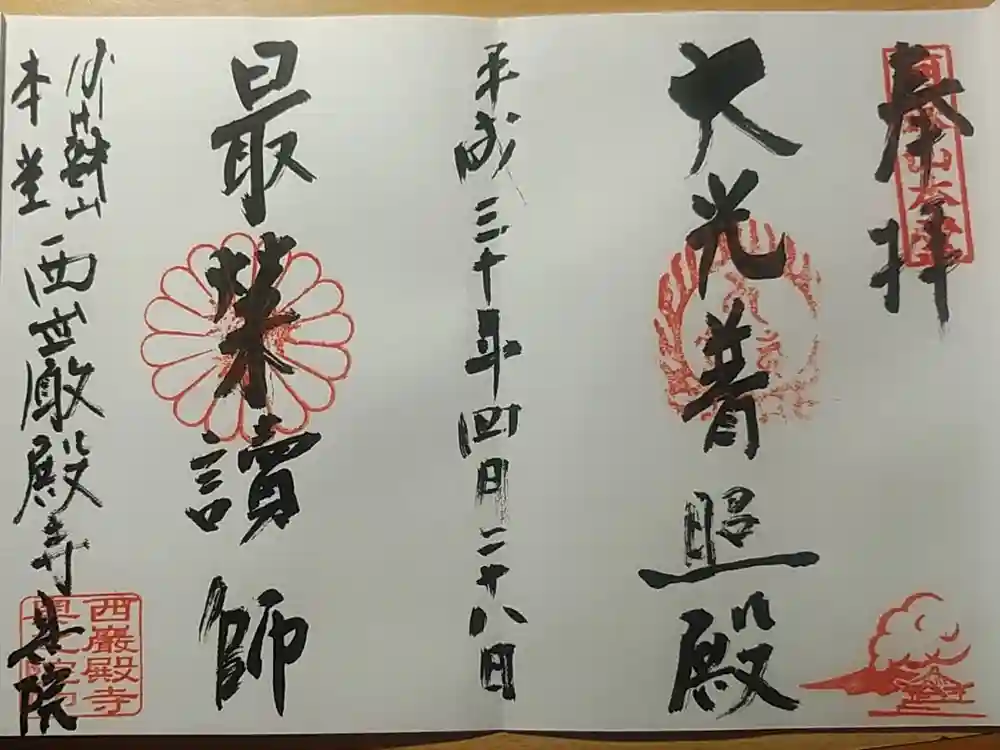 奉拝
大光普照殿
平成三十年四月二十八日
最栄讀師
阿蘇山
本堂
西巌殿寺奥院
西巌殿寺
奥之院印